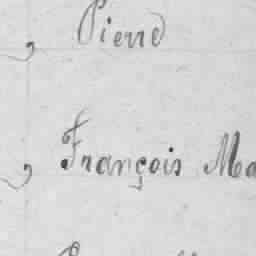 , Pierre
, François Ma